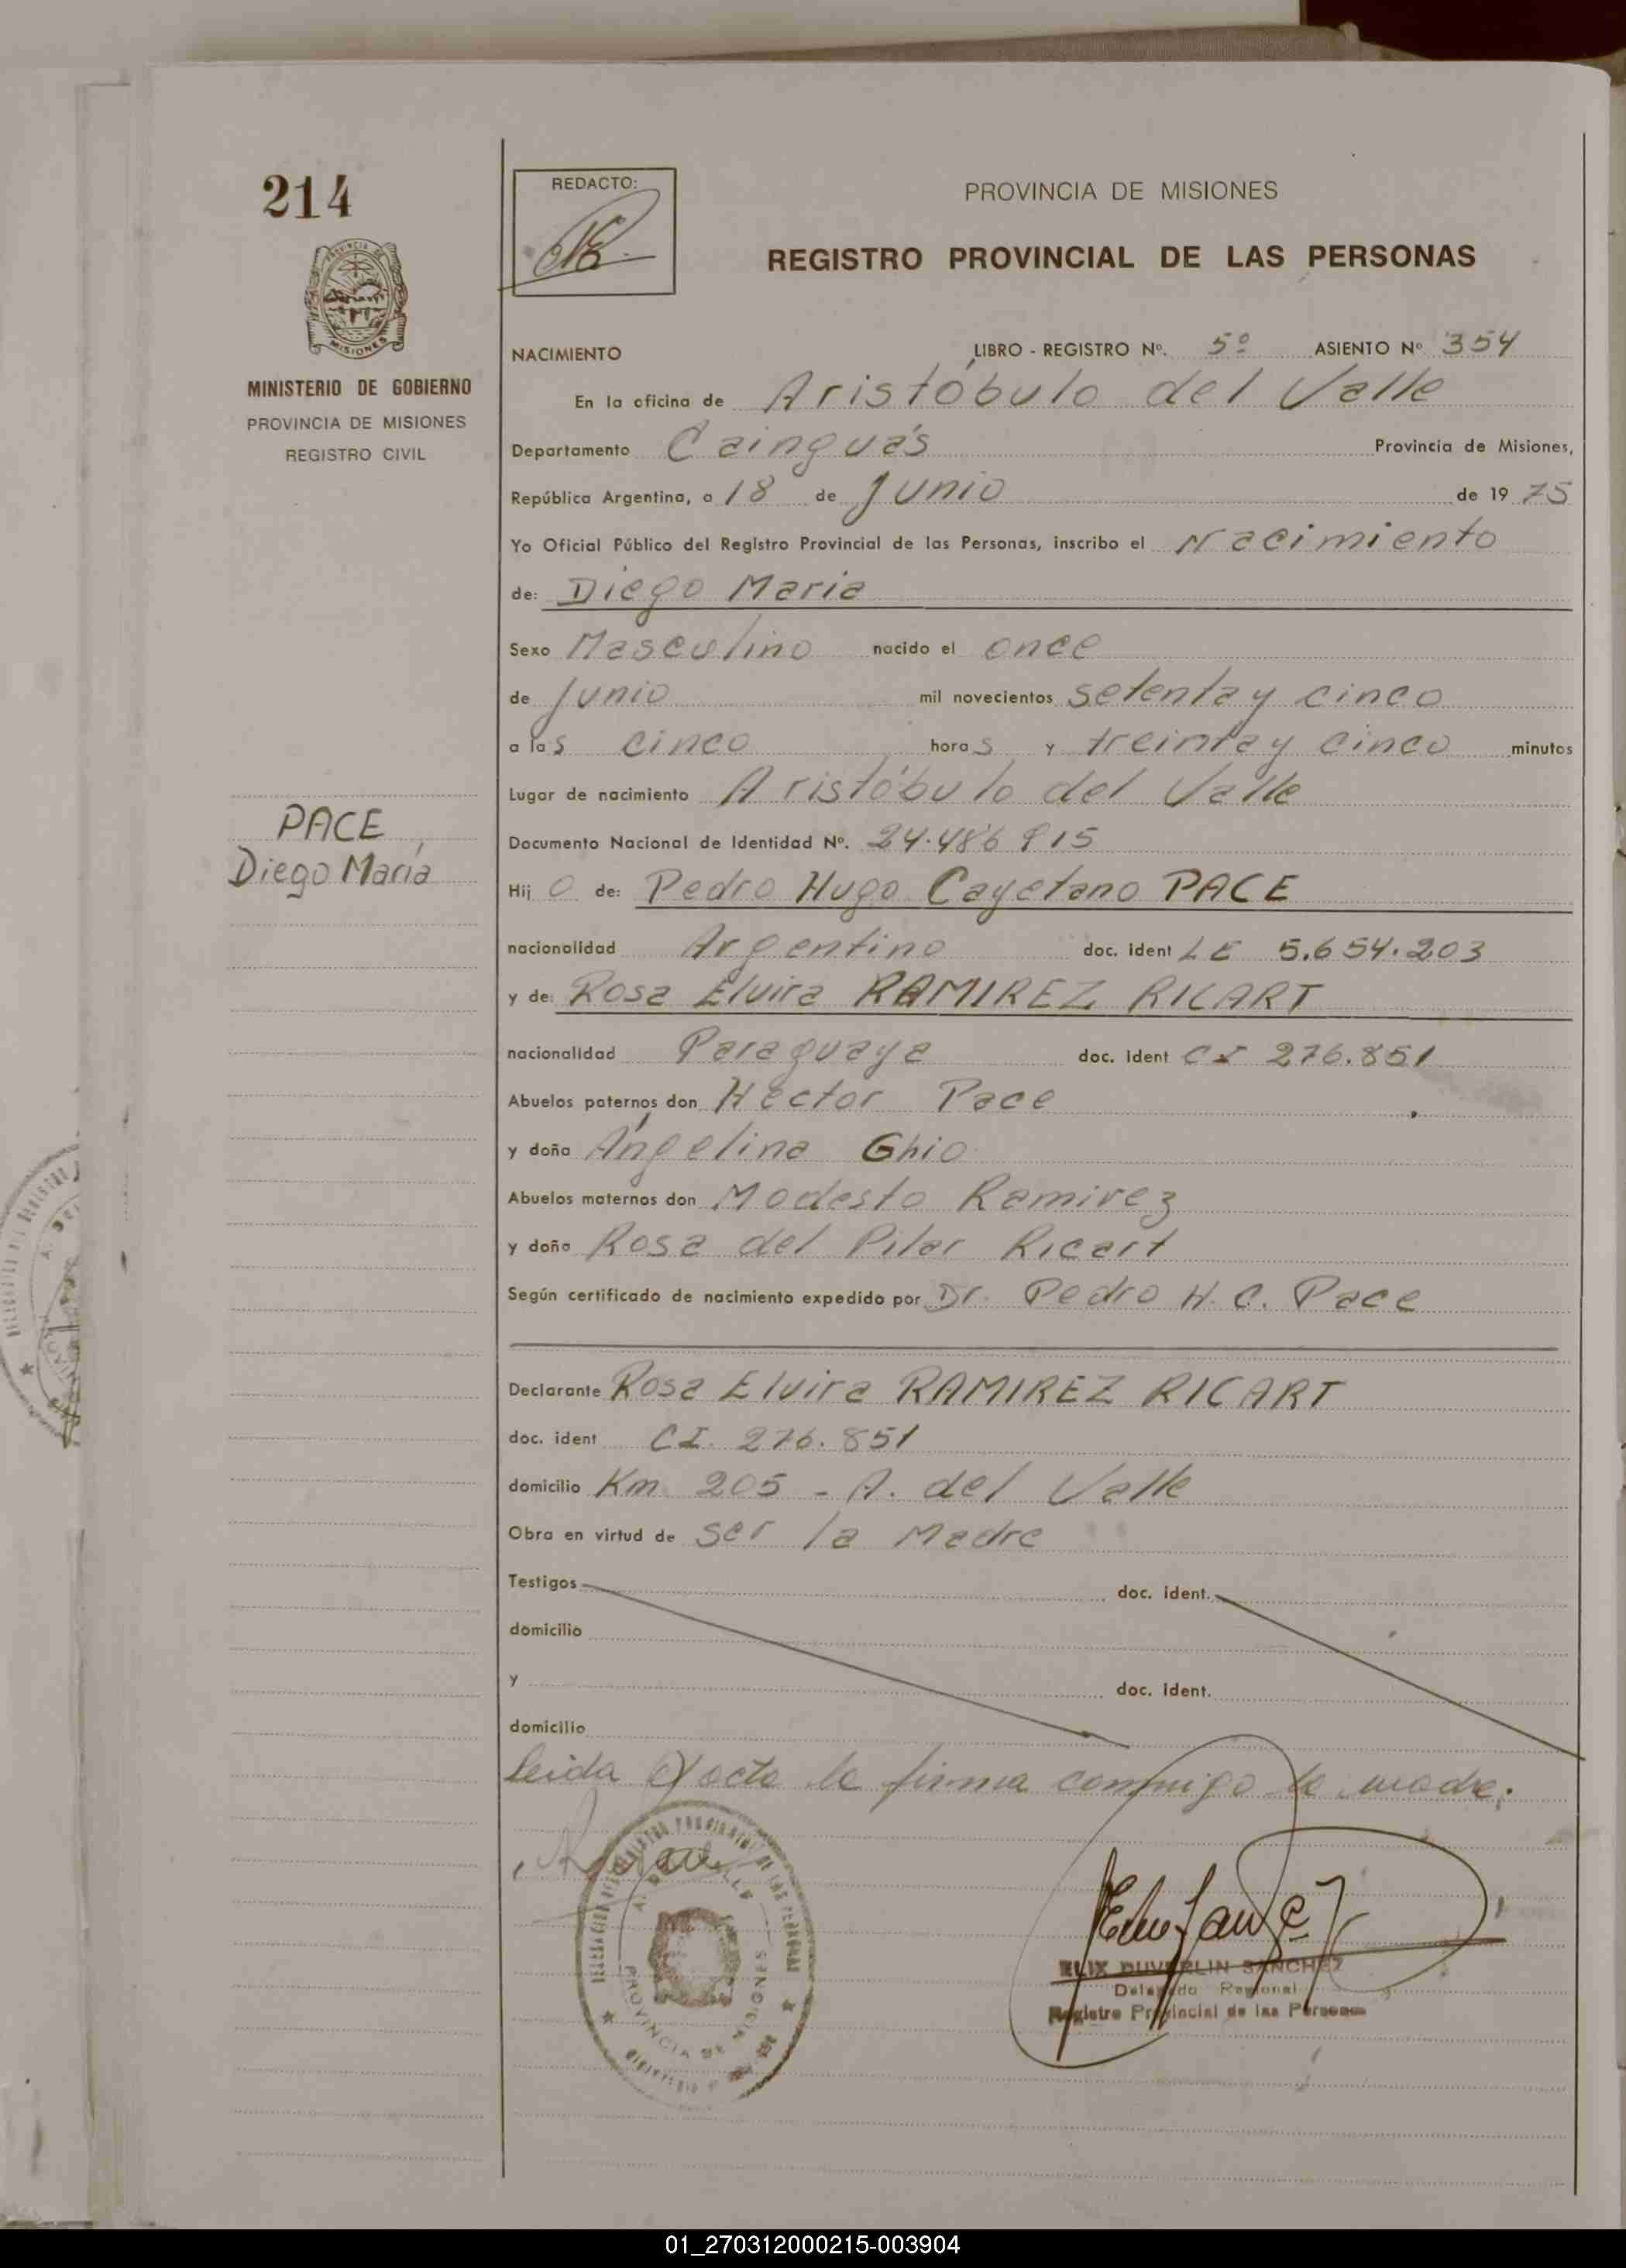 214
PROVINCIA DE
MISIONES
MINISTERIO DE GOBIERNO
PROVINCIA DE MISIONES
REGISTRO CIVIL
PACE
Diego María
REDACTO:
PROVINCIA DE MISIONES
REGISTRO PROVINCIAL DE LAS PERSONAS
NACIMIENTO LIBRO - REGISTRO Nº. 5º ASIENTO Nº 354
En la oficina de Aristóbulo del Valle
Departamento Cainguás Provincia de Misiones,
República Argentina, a 18 de Junio de 19 75
Yo Oficial Público del Registro Provincial de las Personas, inscribo el Nacimiento
de: Diego Maria
Sexo Masculino nacido el once
de Junio mil novecientos setenta y cinco
a las cinco horas y treinta y cinco minutos
Lugar de nacimiento Aristóbulo del Valle
Documento Nacional de Identidad Nº. 24.486 915
Hij o de: Pedro Hugo Cayetano PACE
nacionalidad Argentino doc. ident LE 5.654.203
y de: Rosa Elvira RAMIREZ RICART
nacionalidad Paraguaya doc. ident CI 276.851
Abuelos paternos don Hector Pace
y doña Ángelina Ghio
Abuelos maternos don Modesto Ramirez
y doña Rosa del Pilar Ricart
Según certificado de nacimiento expedido por Dr. Pedro H. C. Pace
Declarante Rosa Elvira RAMIREZ RICART
doc. ident CI. 276.851
domicilio Km 205 - A. del Valle
Obra en virtud de ser la Madre
Testigos doc. ident.
domicilio
y doc. ident.
domicilio
leida el acta la firma conmigo la madre.
PROVINCIA DE MISIONES
ELIX DUVERLIN SANCHEZ
Delegado Regional
Registro Provincial de las Personas
01_270312000215-003904